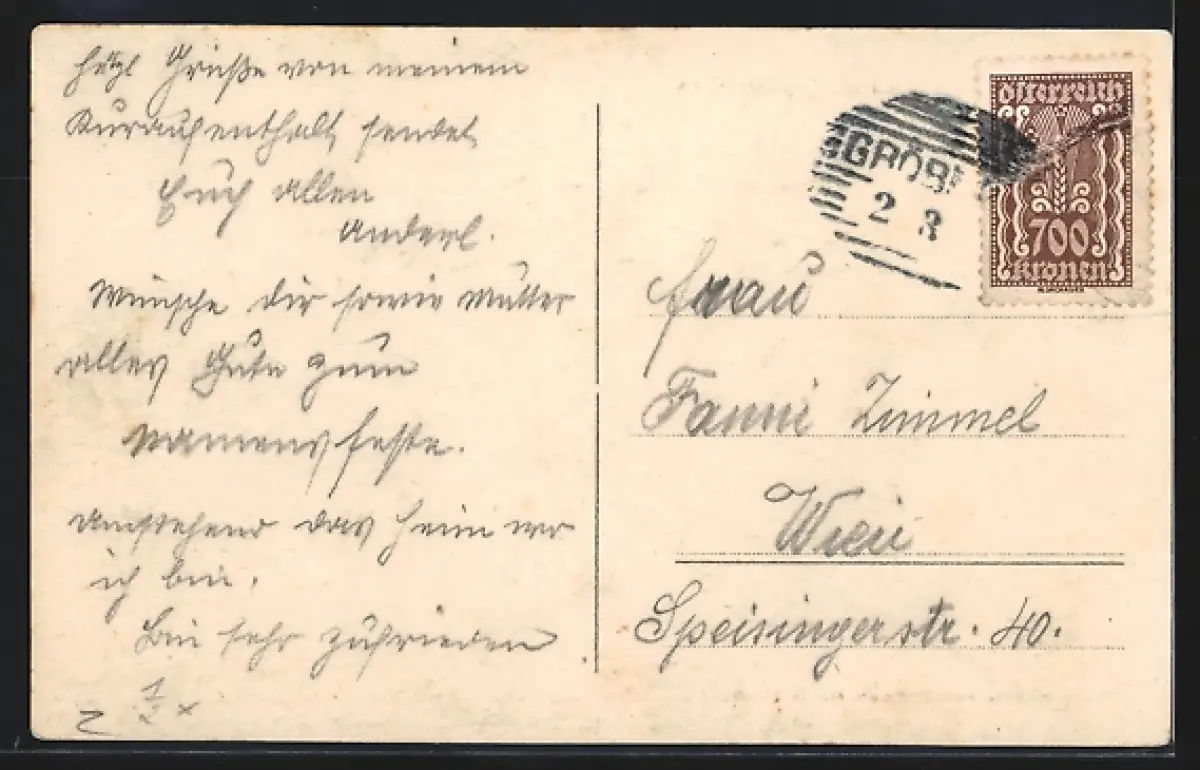 Hrzl Grüße von meinem
Kuraufenthalt sendet
Euch allen
Anderl.
Wünsche dir sowie Mutter
alles Gute zum
Namensfeste.
Umstehend das Heim wo
ich bin.
Bin sehr zufrieden
Österreich
700
Kronen
GRÖB
2 3
Frau
Fanni Zimmel
Wien
Speisingerstr. 40.